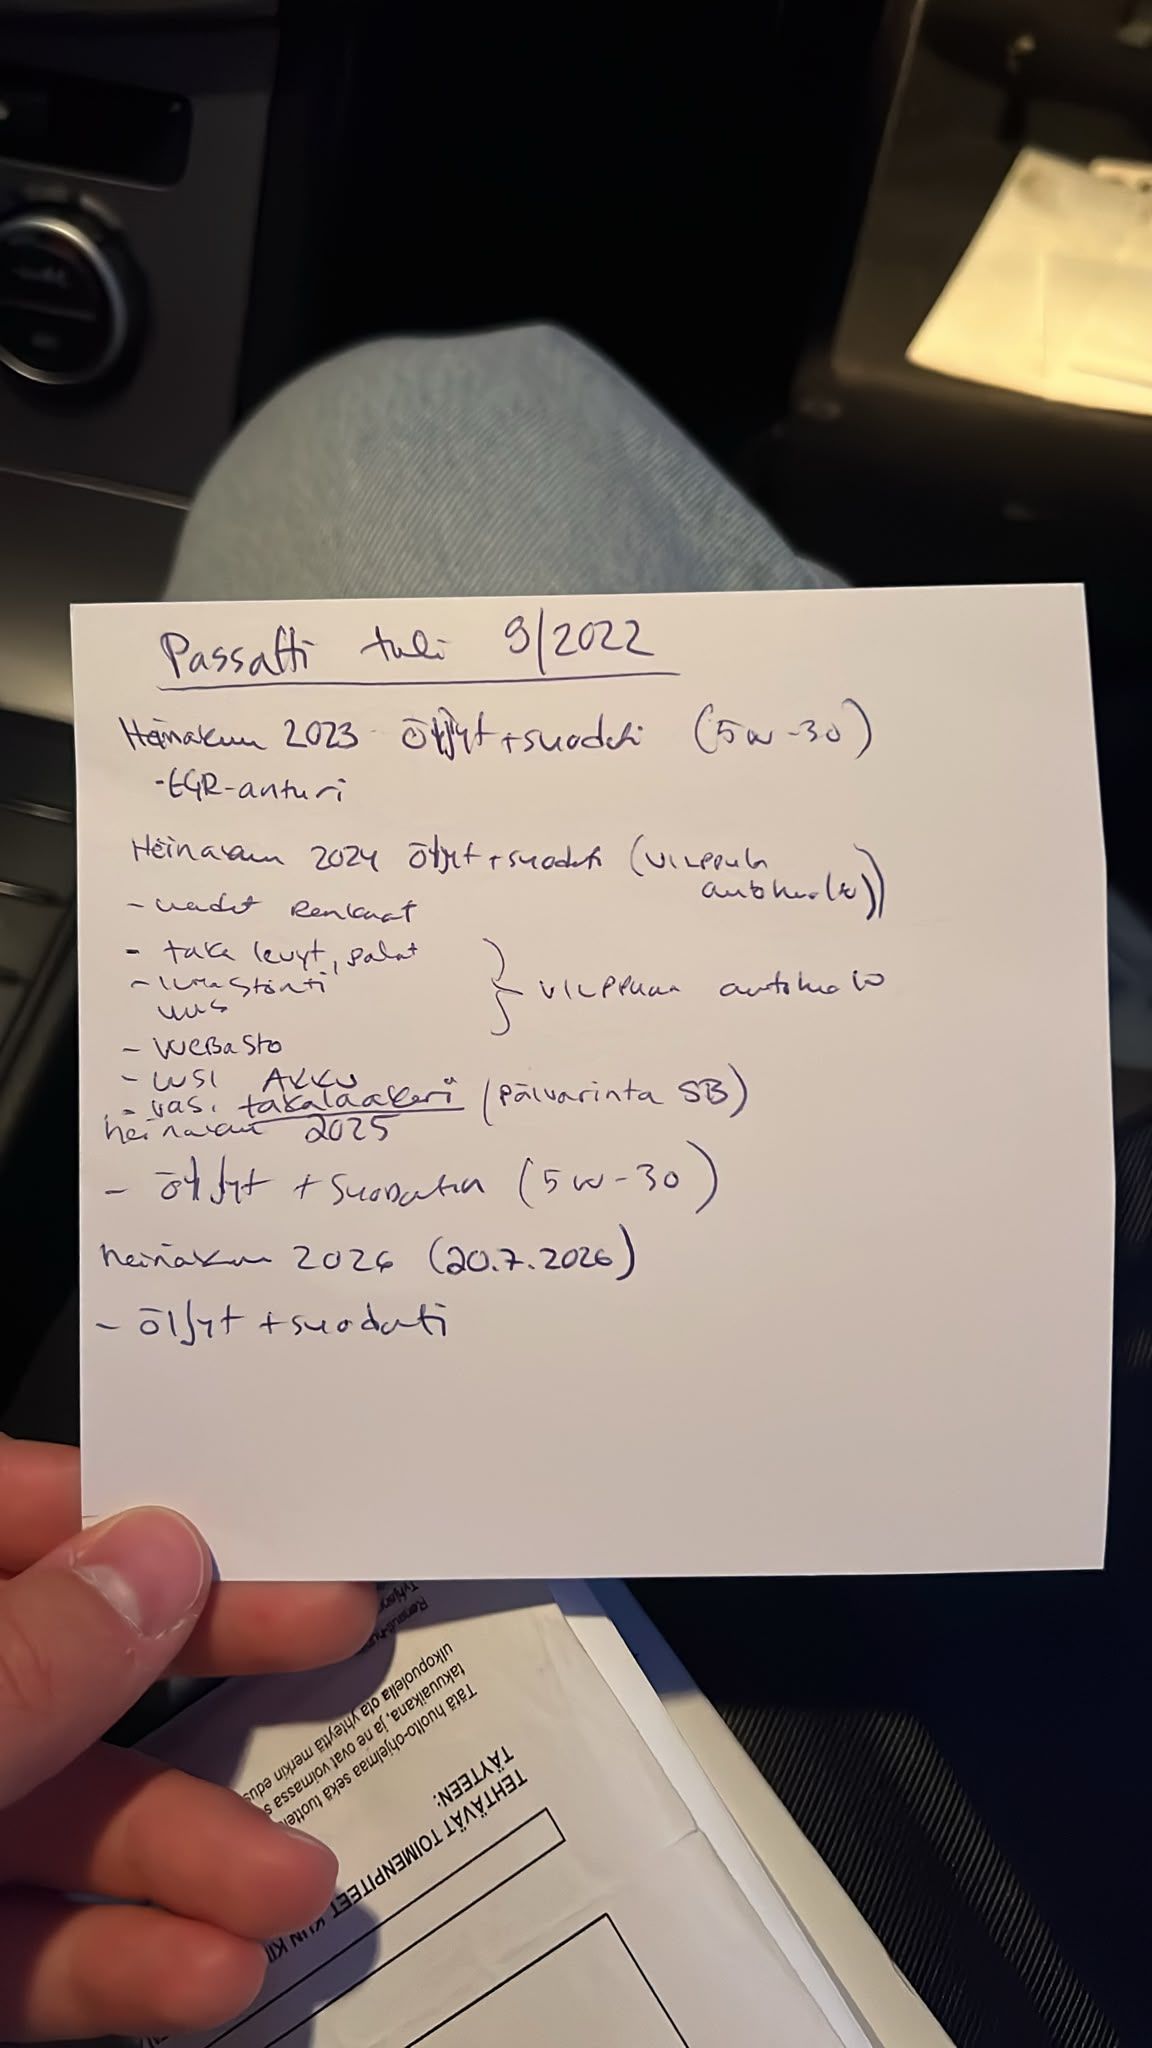 Passatti tuli 9/2022
Heinäkuu 2023 öljyt + suodati (5w-30)
- EGR-anturi
Heinäkuu 2024 öljyt + suodati (VILPPULA
autohuolto)
- uudet Renkaat
- taka levyt, palat
- ilmastointi
huolto
VILPPULAN autohuolto
- WEBASTO
- UUSI AKKU
- vas. takalaakeri (Päivärinta SB)
heinäkuu 2025
- öljyt + Suodatin (5w-30)
heinäkuu 2026 (20.7.2026)
- öljyt + suodati
Tätä huolto-ohjelmaa sekä
takuuaikana, ja ne ovat voimassa
ulkopuolella ota yhteyttä merkin
TEHTÄVÄT TOIMENPITEET KUN
TÄYTEEN: